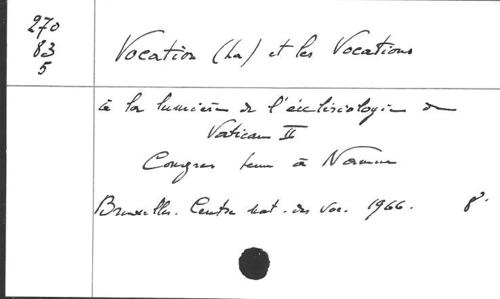 270
83
5
Vocation (La) et les Vocations
à la lumière de l'écclésiologie de
Vatican II
Congres tenu à Namur
Bruxelles. Centre nat. des Voc. 1966. 8°.